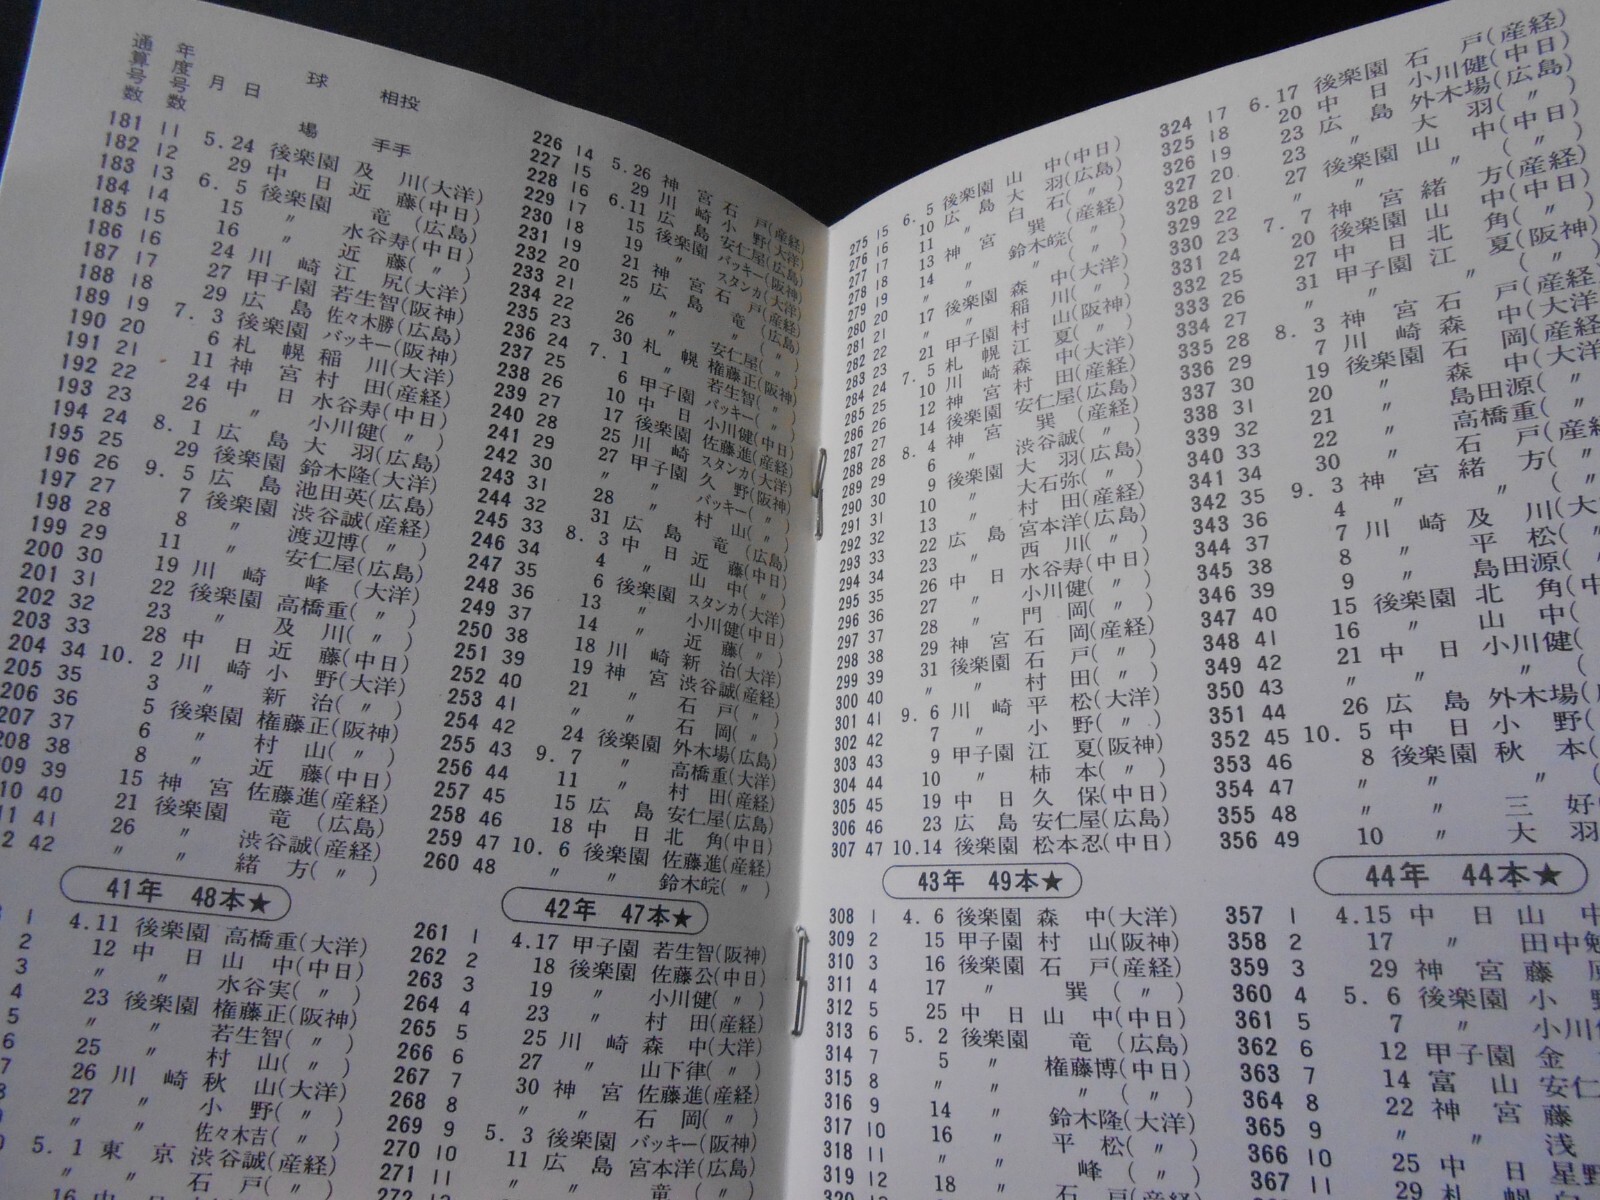 通算号数 年度号数 月 日 球場 相手投手
181 11 5.24 後楽園 及川(大洋)
182 12 29 中日 近藤(中日)
183 13 6.5 後楽園 竜(広島)
184 14 15 〃 水谷寿(中日)
185 15 16 〃 近藤(〃)
186 16 24 川崎 江尻(大洋)
187 17 27 甲子園 若生智(阪神)
188 18 29 広島 佐々木勝(広島)
189 19 7.3 後楽園 バッキー(阪神)
190 20 6 札幌 稲川(大洋)
191 21 11 神宮 村田(産経)
192 22 24 中日 水谷寿(中日)
193 23 26 〃 小川健(〃)
194 24 8.1 広島 大羽(広島)
195 25 29 後楽園 鈴木隆(大洋)
196 26 9.5 広島 池田英(広島)
197 27 7 後楽園 渋谷誠(産経)
198 28 8 〃 渡辺博(〃)
199 29 11 〃 安仁屋(広島)
200 30 19 川崎 峰(大洋)
201 31 22 後楽園 高橋重(〃)
202 32 23 〃 及川(〃)
203 33 28 中日 近藤(中日)
204 34 10.2 川崎 小野(大洋)
205 35 3 〃 新治(〃)
206 36 5 後楽園 権藤正(阪神)
207 37 6 〃 村山(〃)
208 38 8 〃 近藤(中日)
09 39 15 神宮 佐藤進(産経)
10 40 21 後楽園 竜(広島)
11 41 26 〃 渋谷誠(産経)
2 42 〃 〃 緒方(〃)
41年 48本★
1 4.11 後楽園 高橋重(大洋)
2 12 中日 山中(中日)
3 〃 〃 水谷実(〃)
4 23 後楽園 権藤正(阪神)
5 〃 〃 若生智(〃)
6 25 〃 村山(〃)
7 26 川崎 秋山(大洋)
8 27 〃 小野(〃)
〃 〃 佐々木吉(〃)
5.1 東京 渋谷誠(産経)
〃 〃 石戸(〃)
226 14 5.26 神宮 石戸(産経)
227 15 29 川崎 小野(大洋)
228 16 6.11 広島 安仁屋(広島)
229 17 15 後楽園 バッキー(阪神)
230 18 19 〃 スタンカ(大洋)
231 19 21 神宮 石戸(産経)
232 20 25 広島 竜(広島)
233 21 〃 〃
234 22 26 〃 安仁屋(〃)
235 23 30 札幌 権藤正(阪神)
236 24 7.1 〃 若生智(〃)
237 25 6 甲子園 バッキー(〃)
238 26 10 中日 小川健(中日)
239 27 17 後楽園 佐藤進(産経)
240 28 25 川崎 スタンカ(大洋)
241 29 27 甲子園 久野(阪神)
242 30 〃 〃 バッキー(〃)
243 31 28 〃 村山(〃)
244 32 31 広島 竜(広島)
245 33 8.3 中日 近藤(中日)
246 34 4 〃 山中(〃)
247 35 6 後楽園 スタンカ(大洋)
248 36 13 〃 小川健(中日)
249 37 14 〃 近藤(〃)
250 38 18 川崎 新治(大洋)
251 39 19 神宮 渋谷誠(産経)
252 40 21 〃 石戸(〃)
253 41 〃 〃 石岡(〃)
254 42 24 後楽園 外木場(広島)
255 43 9.7 〃 高橋重(大洋)
256 44 11 〃 村田(産経)
257 45 15 広島 安仁屋(広島)
258 46 18 中日 北角(中日)
259 47 10.6 後楽園 佐藤進(産経)
260 48 〃 〃 鈴木皖(〃)
42年 47本★
261 1 4.17 甲子園 若生智(阪神)
262 2 18 後楽園 佐藤公(中日)
263 3 19 〃 小川健(〃)
264 4 23 〃 村田(産経)
265 5 25 川崎 森中(大洋)
266 6 27 〃 山下律(〃)
267 7 30 神宮 佐藤進(産経)
268 8 〃 〃 石岡(〃)
269 9 5.3 後楽園 バッキー(阪神)
270 10 11 広島 宮本洋(広島)
271 11 〃 〃 竜(〃)
275 15 6.5 後楽園 山中(中日)
276 16 10 広島 大羽(広島)
277 17 11 〃 白石(〃)
278 18 13 神宮 巽(産経)
279 19 14 〃 鈴木皖(〃)
280 20 〃 〃
281 21 17 後楽園 森中(大洋)
282 22 〃 〃 稲川(〃)
283 23 21 甲子園 村山(阪神)
284 24 7.5 札幌 江夏(〃)
285 25 10 川崎 森中(大洋)
286 26 12 神宮 村田(産経)
287 27 14 後楽園 安仁屋(広島)
288 28 8.4 神宮 巽(産経)
289 29 6 〃 渋谷誠(〃)
290 30 9 後楽園 大羽(広島)
291 31 10 〃 大石弥(〃)
292 32 13 〃 村田(産経)
293 33 22 広島 宮本洋(広島)
294 34 23 〃 西川(〃)
295 35 26 中日 水谷寿(中日)
296 36 27 〃 小川健(〃)
297 37 28 〃 門岡(〃)
298 38 29 神宮 石岡(産経)
299 39 31 後楽園 石戸(〃)
300 40 〃 〃 村田(〃)
301 41 9.6 川崎 平松(大洋)
302 42 7 〃 小野(〃)
303 43 9 甲子園 江夏(阪神)
304 44 10 〃 柿本(〃)
305 45 19 中日 久保(中日)
306 46 23 広島 安仁屋(広島)
307 47 10.14 後楽園 松本忍(中日)
43年 49本★
308 1 4.6 後楽園 森中(大洋)
309 2 15 甲子園 村山(阪神)
310 3 16 後楽園 石戸(産経)
311 4 17 〃 巽(〃)
312 5 25 中日 山中(中日)
313 6 5.2 後楽園 竜(広島)
314 7 5 〃 権藤博(中日)
315 8 〃 〃 〃(〃)
316 9 14 〃 鈴木隆(大洋)
317 10 16 〃 平松(〃)
318 11 〃 〃 峰(〃)
319 12 18 〃 石戸(産経)
324 17 6.17 後楽園 石戸(産経)
325 18 20 中日 小川健(中日)
326 19 23 広島 外木場(広島)
327 20 23 〃 大羽(〃)
328 21 27 後楽園 山中(中日)
329 22 〃 〃 〃(〃)
330 23 7.7 神宮 緒方(産経)
331 24 20 後楽園 山中(中日)
332 25 27 中日 北角(〃)
333 26 31 甲子園 江夏(阪神)
334 27 〃 〃 〃(〃)
335 28 8.3 神宮 石戸(産経)
336 29 7 川崎 森中(大洋
337 30 19 後楽園 石岡(産経
338 31 20 〃 森中(大洋
339 32 21 〃 島田源(〃
340 33 22 〃 高橋重(〃
341 34 30 〃 石戸(産経
342 35 9.3 神宮 緒方(〃
343 36 4 〃 〃(〃
344 37 7 川崎 及川(大
345 38 8 〃 平松(〃
346 39 9 〃 島田源(〃
347 40 15 後楽園 北角(中
348 41 16 〃 山中(
349 42 21 中日 小川健(
350 43 〃 〃 〃(
351 44 26 広島 外木場(
352 45 10.5 中日 小野(
353 46 8 後楽園 秋本(
354 47 〃 〃 〃
355 48 〃 〃 三好
356 49 10 〃 大羽
44年 44本★
357 1 4.15 中日 山中
358 2 17 〃 田中勉
359 3 29 神宮 藤原
360 4 5.6 後楽園 小野
361 5 7 〃 小川
362 6 12 甲子園 金
363 7 14 富山 安仁
364 8 22 神宮 藤
365 9 〃 〃 浅
366 10 25 中日 星野
367 11 29 札幌